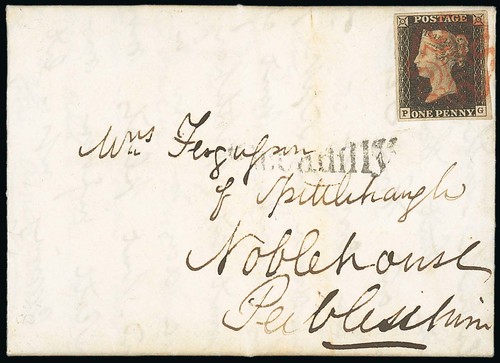 POSTAGE
P ONE PENNY G
Mrs Fergusson
Piccadilly
of Spittlehaugh
Noblehouse
Peeblesshire